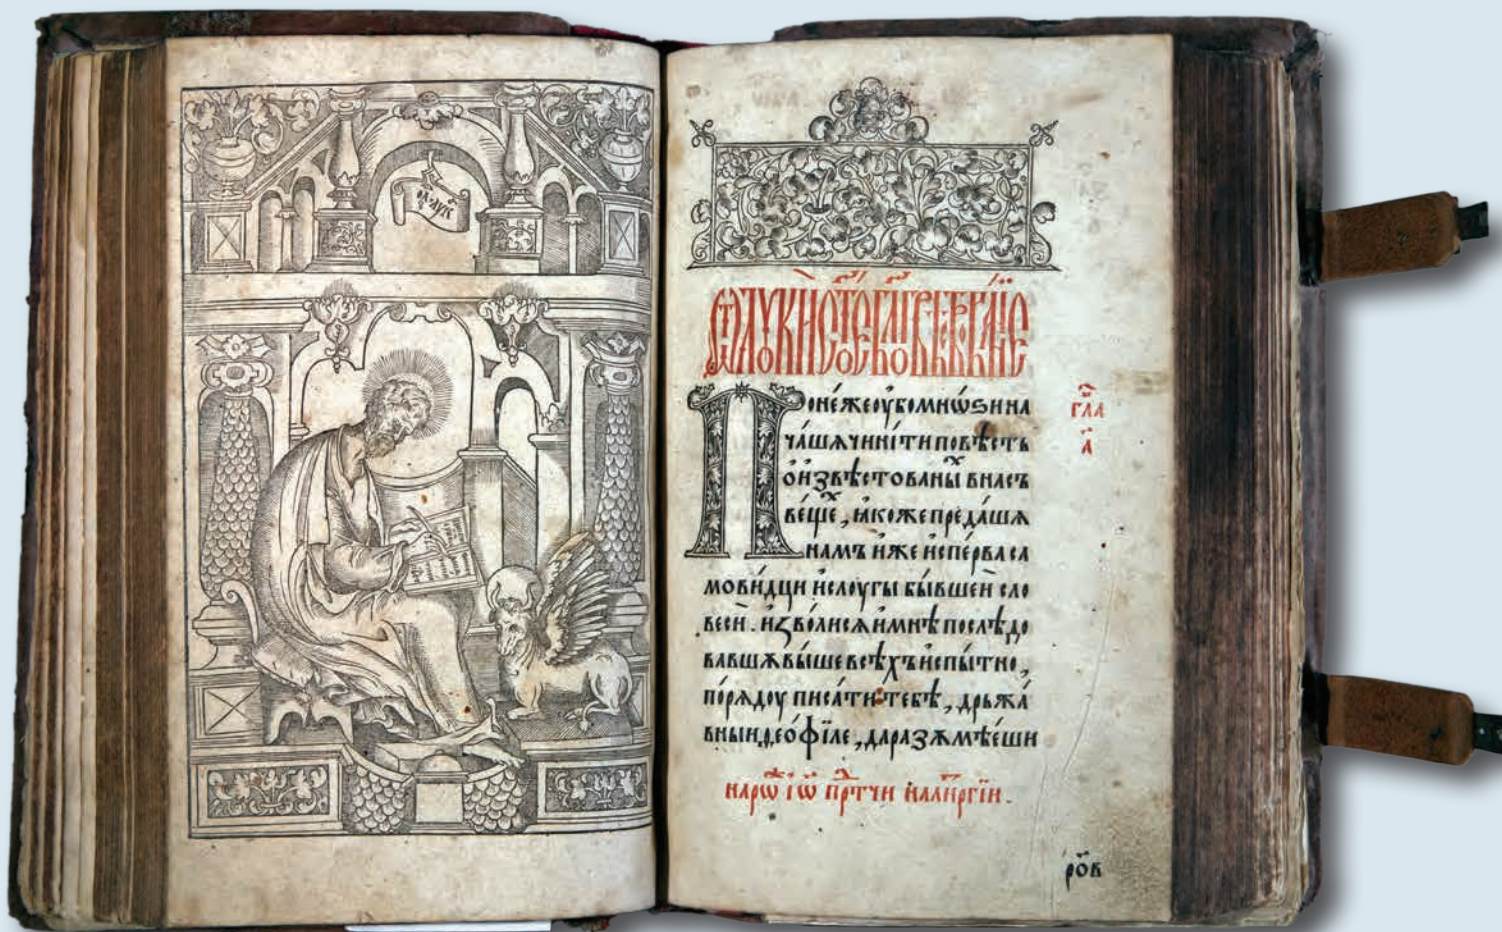 ѿ лꙋки ст҃ое бл҃говѣствованїе
Понеже оу҆бо мнѡѕи на
ча́шѧ чини́ти повѣсть
ѻ҆ и҆звѣствованы́хъ в насъ
ве́щеⷯ, ꙗ҆коже преда́шѧ
намъ и҆же и҆спе́рва са
мови́дци и҆ слоугы бы́вшеи сло
веси̂. и҆зво́лисѧ и҆ мнѣ послѣдо
вавшѫ вы́ше всѣхъ и҆спы́тно,
по́рѧдоу писа́ти тебѣ, дръжа́
вныи ѳеѻ́фїле, да разꙋмѣ́еши
гла
а҃
на рѡⷤ і҆ѡ прⷣтчи на лиⷮргїи.
р҃ѻв